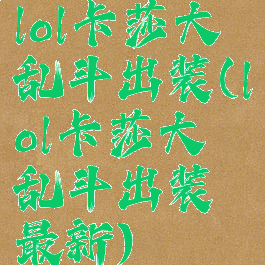 lol卡莎大
乱斗出装(l
ol卡莎大
乱斗出装
最新)